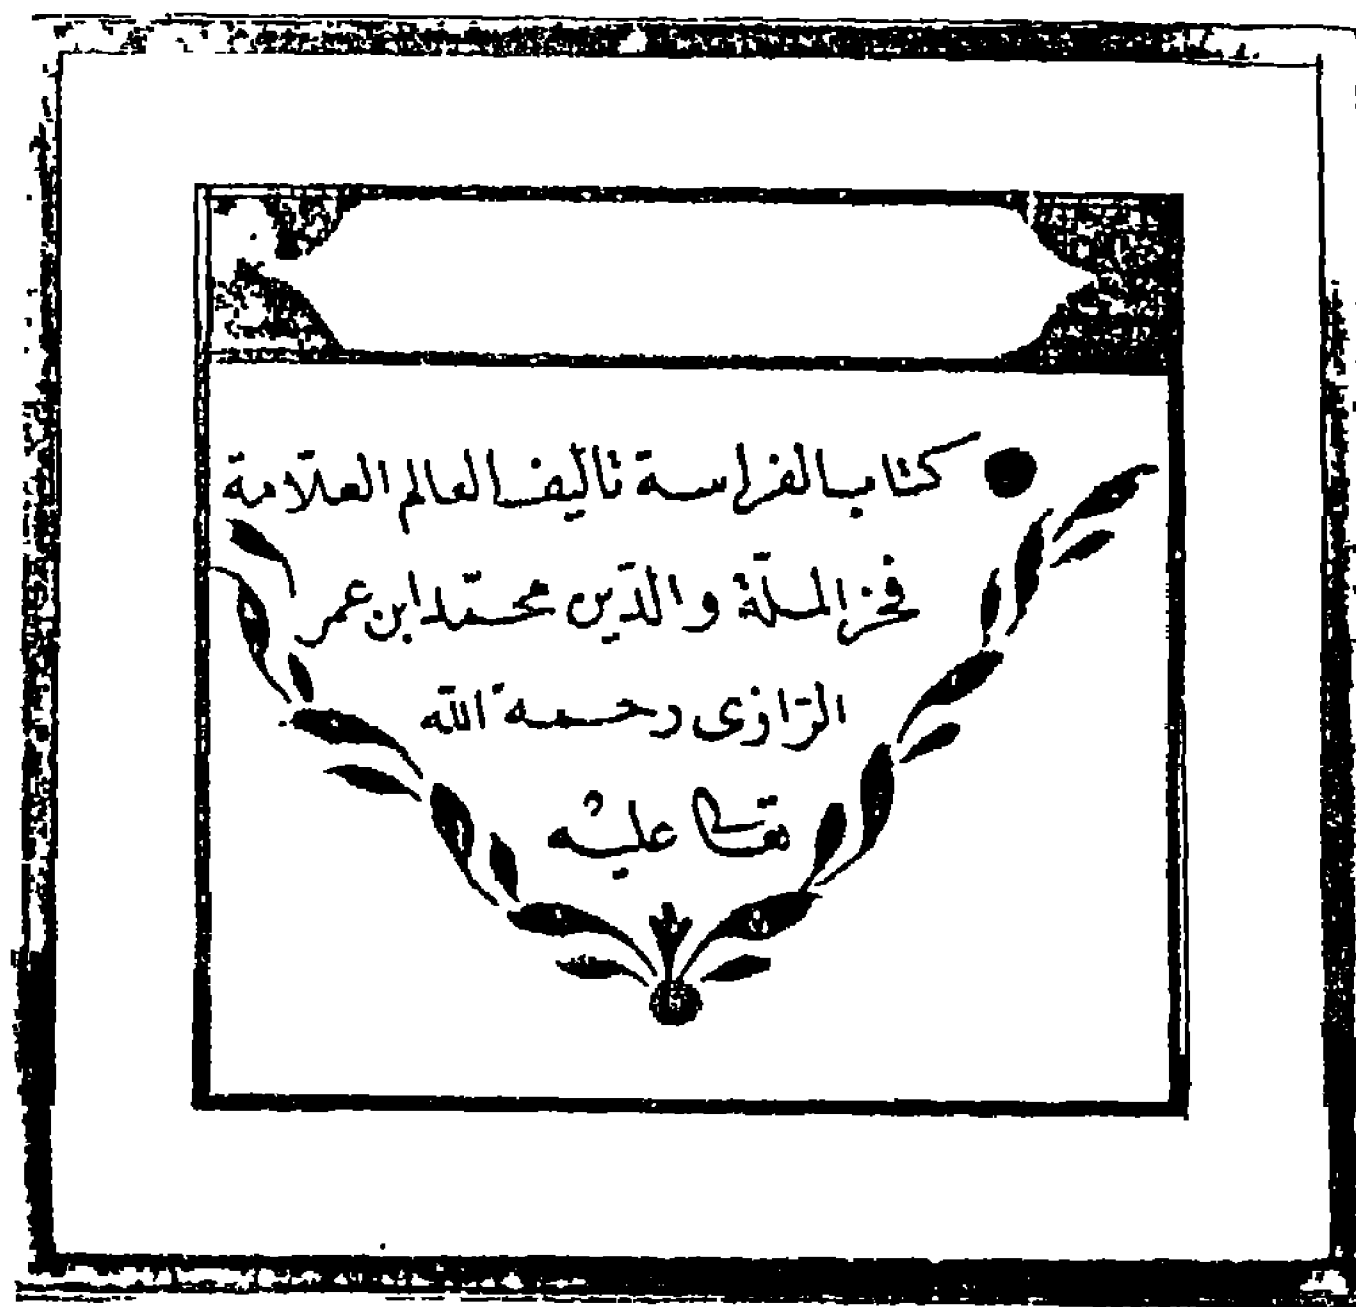 كتاب الفراسة تأليف العالم العلّامة
فخر الملّة والدّين محمّد ابن عمر
الرّازى رحمة اللّه
تعالى عليه